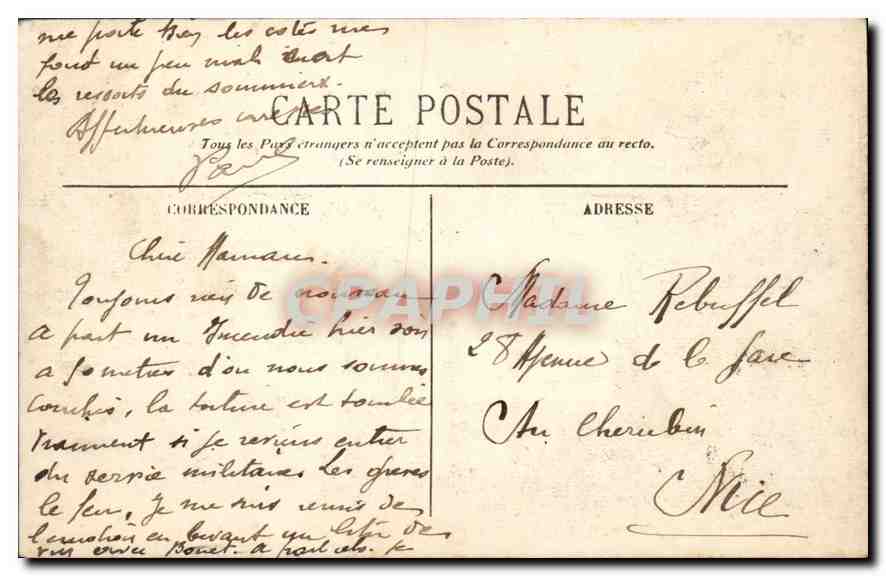 me porte bien les cotés me
font un peu mal
les ressorts du sommier.
Affectueuses
CARTE POSTALE
Tous les Pays étrangers n'acceptent pas la Correspondance au recto.
(Se renseigner à la Poste).
CORRESPONDANCE
ADRESSE
Chère Maman.
Toujours rien de nouveau
a part un Incendie hier soir
a 50 metres d'ou nous sommes
couchés, la toiture est tombée
vraiment si je reviens entier
du service militaire
le feu, Je me suis remis de
l'emotion en buvant un litre de
vin avec Bonet. a part cela je
Madame Rebuffel
28 Avenue de la Gare
Au Cherubin
Nice
CPAPHIL